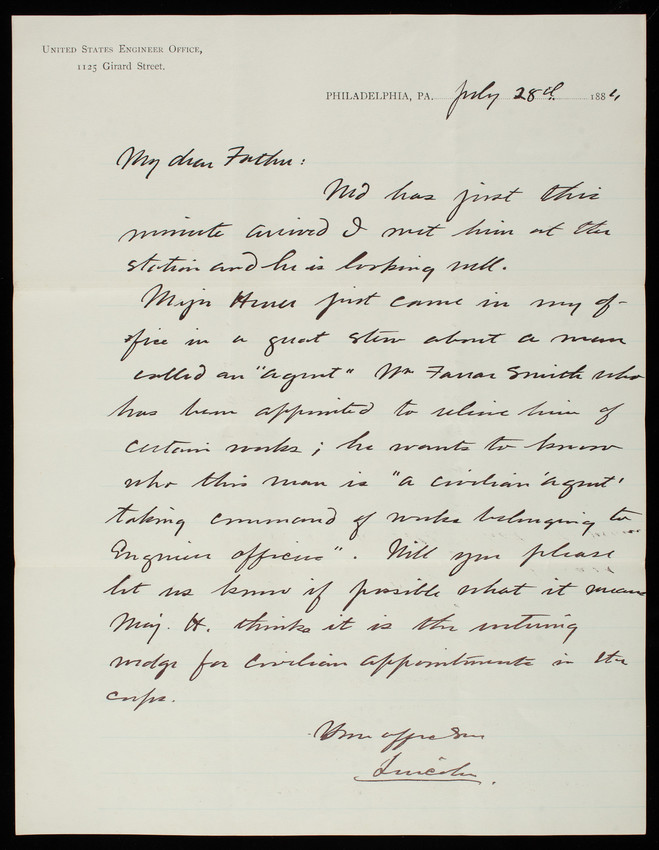 UNITED STATES ENGINEER OFFICE,
1125 Girard Street.
PHILADELPHIA, PA. July 28th 1884
My dear Father:
Ned has just this
minute arrived I met him at the
station and he is looking well.
Major Heuer just came in my of-
fice in a great stew about a man
called an "agent" Wm Farrar Smith who
has been appointed to relieve him of
certain works; he wants to know
who this man is "a civilian 'agent'
taking command of works belonging to
Engineer officers". Will you please
let us know if possible what it means
Maj. H. thinks it is the entering
wedge for civilian appointments in the
corps.
Your affec Son
Lincoln.